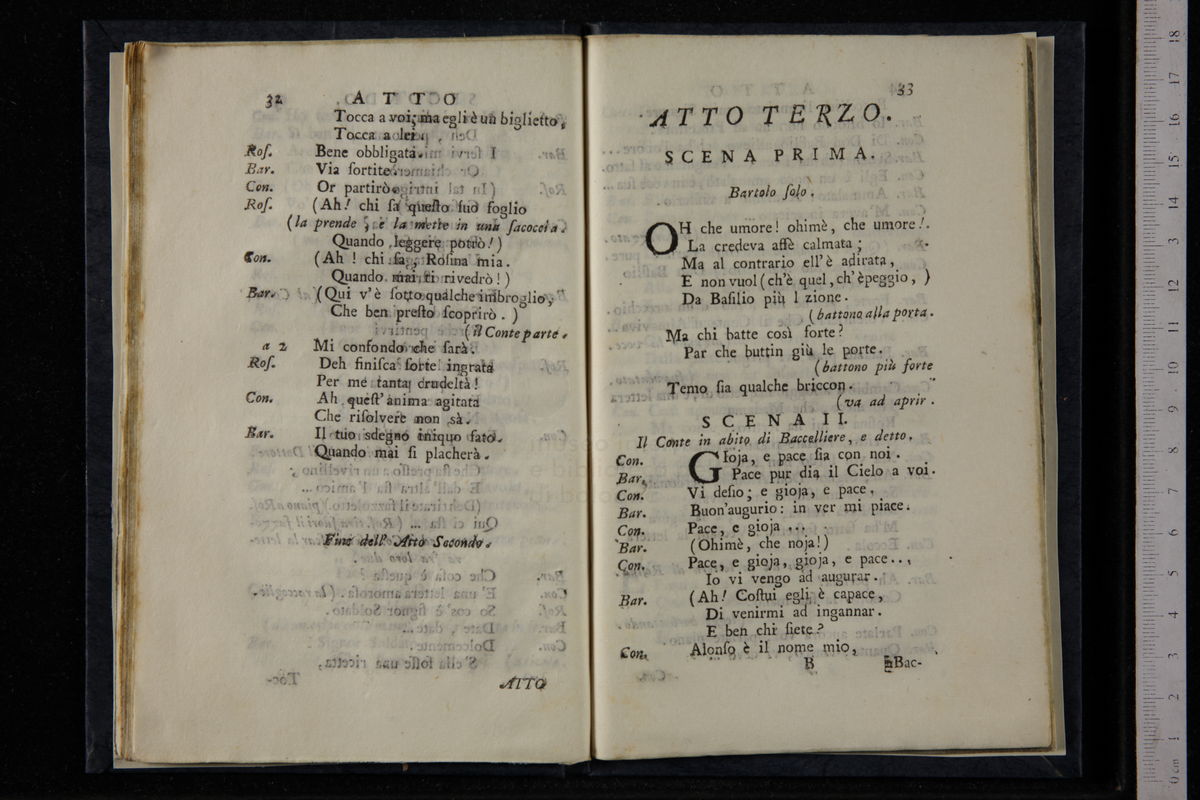 32
ATTO
Tocca a voi; ma egli è un biglietto,
Tocca a lei.
Roſ. Bene obbligata.
Bar. Via ſortite.
Con. Or partirò
Roſ. (Ah! chi ſa queſto ſuo foglio
(la prende, e la mette in una ſacoccia.
Quando leggere potrò!)
Con. (Ah! chi ſa, Roſina mia.
Quando mai ti rivedrò!)
Bar. (Qui v'è ſotto qualche imbroglio,
Che ben preſto ſcoprirò.)
(il Conte parte.
a 2 Mi confondo che ſarà.
Roſ. Deh finiſca ſorte ingrata
Per me tanta crudeltà!
Con. Ah queſt'anima agitata
Che riſolvere non sà.
Bar. Il tuo sdegno iniquo fato.
Quando mai ſi placherà.
Fine dell' Atto Secondo.
ATTO
33
ATTO TERZO.
SCENA PRIMA.
Bartolo ſolo.
OH che umore! ohimè, che umore!
La credeva affè calmata;
Ma al contrario ell'è adirata,
E non vuol (ch'è quel, ch'è peggio,)
Da Baſilio più l zione.
(battono alla porta.
Ma chi batte così forte?
Par che buttin giù le porte.
(battono più forte
Temo ſia qualche briccon.
(va ad aprir.
SCENA II.
Il Conte in abito di Baccelliere, e detto.
Con. GIoja, e pace ſia con noi.
Bar. Pace pur dia il Cielo a voi.
Con. Vi deſio; e gioja, e pace,
Bar. Buon'augurio: in ver mi piace.
Con. Pace, e gioja ...
Bar. (Ohimè, che noja!)
Con. Pace, e gioja, gioja, e pace...
Io vi vengo ad augurar.
Bar. (Ah! Coſtui egli è capace,
Di venirmi ad ingannar.
E ben chi ſiete?
Con. Alonſo è il nome mio,
B
Bac-